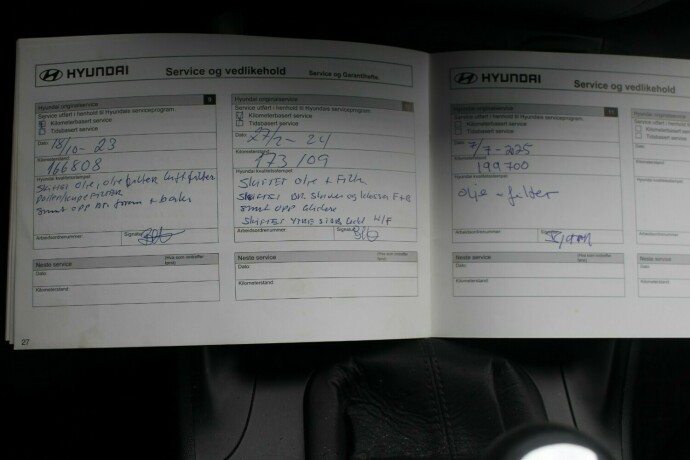 HYUNDAI
Service og vedlikehold
Service og Garantihefte
Hyundai originalservice
Service utført i henhold til Hyundais serviceprogram.
Kilometerbasert service
Tidsbasert service
Dato
18/10-23
Kilometerstand
166808
Hyundai kvalitetsstempel
Skiftet olje, oljefilter, luftfilter
Smurt opp br. foran + bak
Arbeidsordrenummer
Signatur
Neste service
(Hva som inntreffer først)
Dato
Kilometerstand
27
Hyundai originalservice
Service utført i henhold til Hyundais serviceprogram.
Kilometerbasert service
Tidsbasert service
Dato
27/2-24
Kilometerstand
173109
Hyundai kvalitetsstempel
Skiftet olje + Filter
Skiftet br. skiver og klosser F+B
Smurt opp
Skiftet
Arbeidsordrenummer
Signatur
Neste service
(Hva som inntreffer først)
Dato
Kilometerstand
HYUNDAI
Service og vedlikehold
Hyundai originalservice
11
Service utført i henhold til Hyundais serviceprogram.
Kilometerbasert service
Tidsbasert service
Dato
7/7-225
Kilometerstand
199700
Hyundai kvalitetsstempel
olje - filter
Arbeidsordrenummer
Neste service
(Hva som inntreffer først)
Dato
Kilometerstand